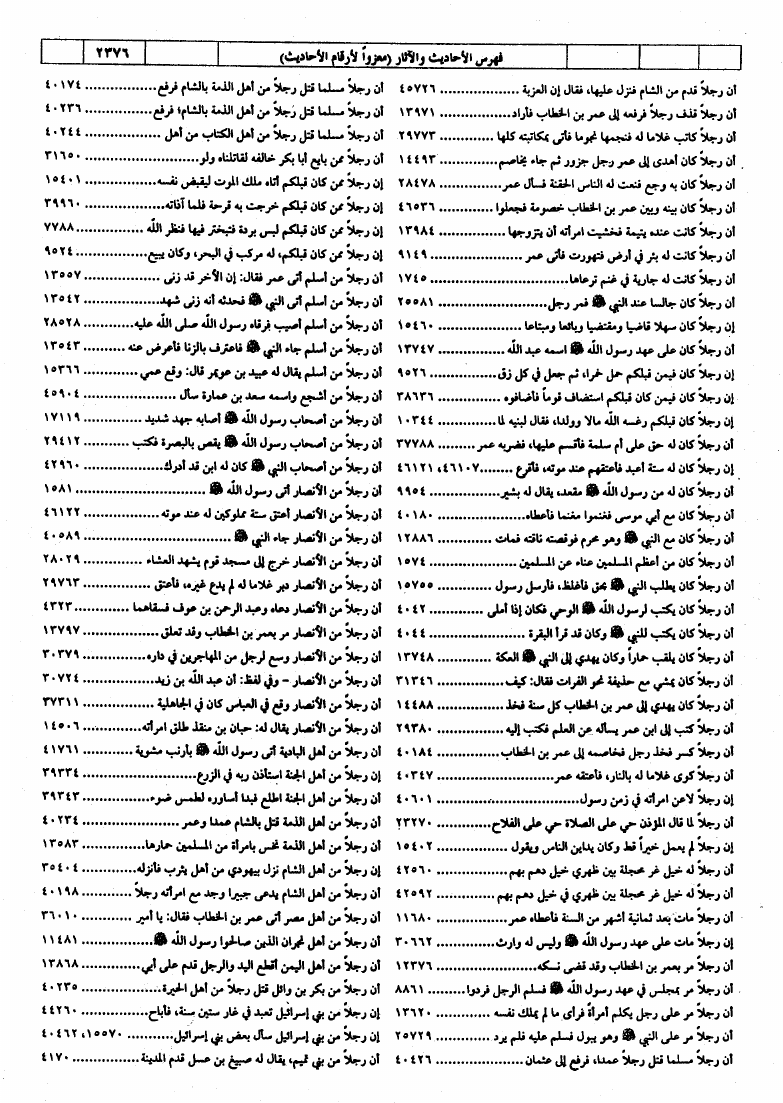 فهرس الأحاديث والآثار (معزواً لأرقام الأحاديث)
٢٣٧٦
أن رجلاً قدم من الشام فنزل عليها، فقال إن العزبة .................. ٤٥٧٢٦
أن رجلاً قذف رجلاً فرفعه إلى عمر بن الخطاب فأراد .................. ١٣٩٧١
أن رجلاً كاتب غلاما له فنجمها نجوما فأتى بمكاتبته كلها .................. ٢٩٧٧٣
أن رجلاً كان أهدى إلى عمر رجل جزور ثم جاء يخاصم .................. ١٤٤٩٣
أن رجلاً كان به وجع فنعت له الناس الحقنة فسأل عمر .................. ٢٨٤٧٨
أن رجلاً كان بينه وبين عمر بن الخطاب خصومة فجعلوا .................. ٤٦٥٣٦
أن رجلاً كانت عنده يتيمة فخشيت امرأته أن يتزوجها .................. ١٣٩٨٤
أن رجلاً كانت له بئر في أرض فتهورت فأتى عمر .................. ٩١٤٩
أن رجلاً كانت له جارية في غنم ترعاها .................. ١٧٤٥
أن رجلاً كان جالسا عند النبي ﷺ فمر رجل .................. ٢٥٥٨١
إن رجلاً كان سهلا قاضيا ومقتضيا وبائعا ومبتاعا .................. ١٥٤٦٠
أن رجلاً كان على عهد رسول الله ﷺ اسمه عبد الله .................. ١٣٧٤٧
إن رجلاً كان فيمن قبلكم حمل خمرا، ثم جعل في كل زق .................. ٩٥٢٦
أن رجلاً كان فيمن كان قبلكم استضاف قوماً فأضافوه .................. ٣٨٦٣٦
إن رجلاً كان قبلكم رغسه الله مالا وولدا، فقال لبنيه لما .................. ١٠٣٤٤
أن رجلاً كان له حق على أم سلمة فأقسم عليها، فضربه عمر .................. ٣٧٧٨٨
إن رجلاً كان له ستة أعبد فأعتقهم عند موته، فأقرع ........٤٦١٠٧، ٤٦١٢١
أن رجلاً كان له من رسول الله ﷺ مقعد، يقال له بشير .................. ٩٩٥٤
أن رجلاً كان مع أبي موسى فغنموا مغنما فأعطاه .................. ٤٠١٨٠
أن رجلاً كان مع النبي ﷺ وهو محرم فوقصته ناقته فمات .................. ١٢٨٨٦
أن رجلاً كان من أعظم المسلمين عناء عن المسلمين .................. ١٥٧٤
أن رجلاً كان يطلب النبي ﷺ بحق فأغلظ، فأرسل رسول .................. ١٥٧٥٥
أن رجلاً كان يكتب لرسول الله ﷺ الوحي فكان إذا أملى .................. ٤٠٤٢
أن رجلاً كان يكتب للنبي ﷺ وكان قد قرأ البقرة .................. ٤٠٤٤
أن رجلاً كان يلقب حماراً وكان يهدي إلى النبي ﷺ العكة .................. ١٣٧٤٨
أن رجلاً كان يمشي مع حذيفة نحو الفرات فقال: كيف .................. ٣١٣٤٦
أن رجلاً كان يهدي إلى عمر بن الخطاب كل سنة فخذ .................. ١٤٤٨٨
أن رجلاً كتب إلى ابن عمر يسأله عن العلم فكتب إليه .................. ٢٩٣٨٠
أن رجلاً كسر فخذ رجل فخاصمه إلى عمر بن الخطاب .................. ٤٠١٨٤
أن رجلاً كوى غلاما له بالنار، فأعتقه عمر .................. ٤٠٣٤٧
إن رجلاً لاعن امرأته في زمن رسول .................. ٤٠٦٠١
أن رجلاً لما قال المؤذن حي على الصلاة حي على الفلاح .................. ٢٣٢٧٠
إن رجلاً لم يعمل خيراً قط وكان يداين الناس ويقول .................. ١٥٤٠٢
أن رجلاً له خيل غر محجلة بين ظهري خيل دهم بهم .................. ٤٢٥٦٠
أن رجلاً له خيل غر محجلة بين ظهري في خيل دهم بهم .................. ٤٢٥٩٢
أن رجلاً مات بعد ثمانية أشهر من السنة فأعطاه عمر .................. ١١٦٨٠
إن رجلاً مات على عهد رسول الله ﷺ وليس له وارث .................. ٣٠٦٦٢
أن رجلاً مر بعمر بن الخطاب وقد قضى نسكه .................. ١٢٣٧٦
أن رجلاً مر بمجلس في عهد رسول الله ﷺ فسلم الرجل فردوا .................. ٨٨٦١
أن رجلاً مر على رجل يكلم امرأة فرأى ما لم يملك نفسه .................. ١٣٦٢٠
أن رجلاً مر على النبي ﷺ وهو يبول فسلم عليه فلم يرد .................. ٢٥٧٢٩
أن رجلاً مسلما قتل رجلاً عمدا، فرفع إلى عثمان .................. ٤٠٤٢٦
أن رجلاً مسلما قتل رجلاً من أهل الذمة بالشام فرفع .................. ٤٠١٧٤
أن رجلاً مسلما قتل رجلاً من أهل الذمة بالشام؛ فرفع .................. ٤٠٢٣٦
أن رجلاً مسلما قتل رجلاً من أهل الكتاب من أهل .................. ٤٠٢٤٤
أن رجلاً ممن بايع أبا بكر خالفه لقاتلناه ولو .................. ٣١٦٥٠
إن رجلاً ممن كان قبلكم أتاه ملك الموت ليقبض نفسه .................. ١٥٤٠١
إن رجلاً ممن كان قبلكم خرجت به قرحة فلما آذاته .................. ٣٩٩٦٠
أن رجلاً ممن كان قبلكم لبس بردة فتبختر فيها فنظر الله .................. ٧٧٨٨
إن رجلاً ممن كان قبلكم، له مركب في البحر، وكان يبيع .................. ٩٥٢٤
أن رجلاً من أسلم أتى عمر فقال: إن الآخر قد زنى .................. ١٣٥٥٧
أن رجلاً من أسلم أتى النبي ﷺ فحدثه أنه زنى شهد .................. ١٣٥٤٢
أن رجلاً من أسلم أصيب فرقاه رسول الله صلى الله عليه .................. ٢٨٥٢٨
أن رجلاً من أسلم جاء النبي ﷺ فاعترف بالزنا فأعرض عنه .................. ١٣٥٤٣
أن رجلاً من أسلم يقال له عبيد بن عويمر قال: وقع عمي .................. ١٥٣٦٦
أن رجلاً من أشجع واسمه سعد بن عمارة سأل .................. ٤٥٩٠٤
أن رجلاً من أصحاب رسول الله ﷺ أصابه جهد شديد .................. ١٧١١٩
أن رجلاً من أصحاب رسول الله ﷺ يقص بالبصرة فكتب .................. ٢٩٤١٢
أن رجلاً من أصحاب النبي ﷺ كان له ابن قد أدرك .................. ٤٢٩٦٠
أن رجلاً من الأنصار أتى رسول الله ﷺ .................. ١٥٨١
أن رجلاً من الأنصار أعتق ستة مملوكين له عند موته .................. ٤٦١٢٢
أن رجلاً من الأنصار جاء النبي ﷺ .................. ٤٠٥٨٩
أن رجلاً من الأنصار خرج إلى مسجد قوم يشهد العشاء .................. ٢٨٠٢٩
أن رجلاً من الأنصار دبر غلاما له لم يدع غيره، فأعتق .................. ٢٩٧٦٣
أن رجلاً من الأنصار دعاه وعبد الرحمن بن عوف فسقاهما .................. ٤٣٢٣
أن رجلاً من الأنصار مر بعمر بن الخطاب وقد تعلق .................. ١٣٧٩٧
أن رجلاً من الأنصار وسع لرجل من المهاجرين في داره .................. ٣٠٣٧٩
أن رجلاً من الأنصار - وفي لفظ: أن عبد الله بن زيد .................. ٣٠٧٢٤
أن رجلاً من الأنصار وقع في العباس كان في الجاهلية .................. ٣٧٣١١
أن رجلاً من الأنصار يقال له: حبان بن منقذ طلق امرأته .................. ١٤٥٠٦
أن رجلاً من أهل البادية أتى رسول الله ﷺ بأرنب مشوية .................. ٤١٧٦١
إن رجلاً من أهل الجنة استأذن ربه في الزرع .................. ٣٩٣٣٤
أن رجلاً من أهل الجنة اطلع فبدا أساوره لطمس ضوء .................. ٣٩٣٤٣
أن رجلاً من أهل الذمة قتل بالشام عمدا وعمر .................. ٤٠٢٣٤
أن رجلاً من أهل الذمة نخس بامرأة من المسلمين حمارها .................. ١٣٥٨٣
أن رجلاً من أهل الشام نزل بيهودي من أهل يثرب فأنزله .................. ٣٥٤٠٤
أن رجلاً من أهل الشام يدعى جبيرا وجد مع امرأته رجلاً .................. ٤٠١٩٨
أن رجلاً من أهل مصر أتى عمر بن الخطاب فقال: يا أمير .................. ٣٦٠١٠
أن رجلاً من أهل نجران الذين صالحوا رسول الله ﷺ .................. ١١٤٨١
أن رجلاً من أهل اليمن أقطع اليد والرجل قدم على أبي .................. ١٣٨٦٨
أن رجلاً من بكر بن وائل قتل رجلاً من أهل الحيرة .................. ٤٠٢٣٥
إن رجلاً من بني إسرائيل تعبد في غار ستين سنة، فأباح .................. ٤٤٢٦٠
إن رجلاً من بني إسرائيل سأل بعض بني إسرائيل ........١٥٥٧٠، ٤٠٤٦٢
أن رجلاً من بني تميم، يقال له صبيغ بن عسل قدم المدينة .................. ٤١٧٠